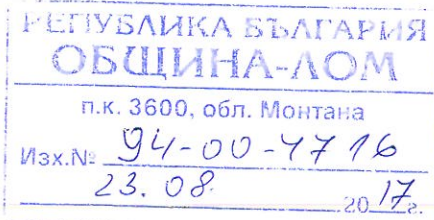 РЕПУБЛИКА БЪЛГАРИЯ
ОБЩИНА-ЛОМ
п.к. 3600, обл. Монтана
Изх.№ 94-00-4716
23. 08. 2017г.